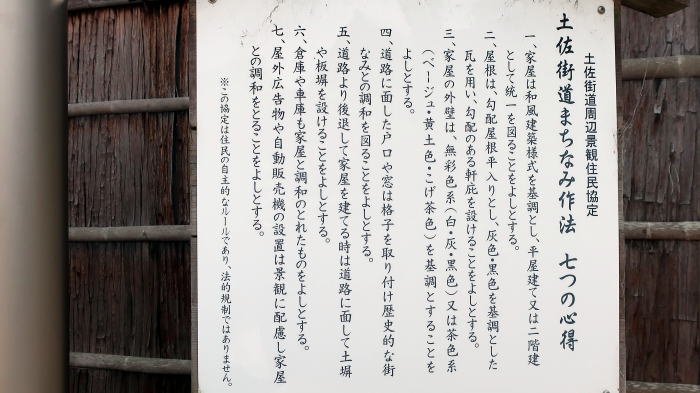 土佐街道周辺景観住民協定
土佐街道まちなみ作法 七つの心得
一、家屋は和風建築様式を基調とし、平屋建て又は二階建
として統一を図ることをよしとする。
二、屋根は、勾配屋根平入りとし、灰色・黒色を基調とした
瓦を用い、勾配のある軒庇を設けることをよしとする。
三、家屋の外壁は、無彩色系(白・灰・黒色)又は茶色系
(ベージュ・黄土色・こげ茶色)を基調とすることを
よしとする。
四、道路に面した戸口や窓は格子を取り付け歴史的な街
なみとの調和を図ることをよしとする。
五、道路より後退して家屋を建てる時は道路に面して土塀
や板塀を設けることをよしとする。
六、倉庫や車庫も家屋と調和のとれたものをよしとする。
七、屋外広告物や自動販売機の設置は景観に配慮し家屋
との調和をとることをよしとする。
※この協定は住民の自主的なルールであり、法的規制ではありません。